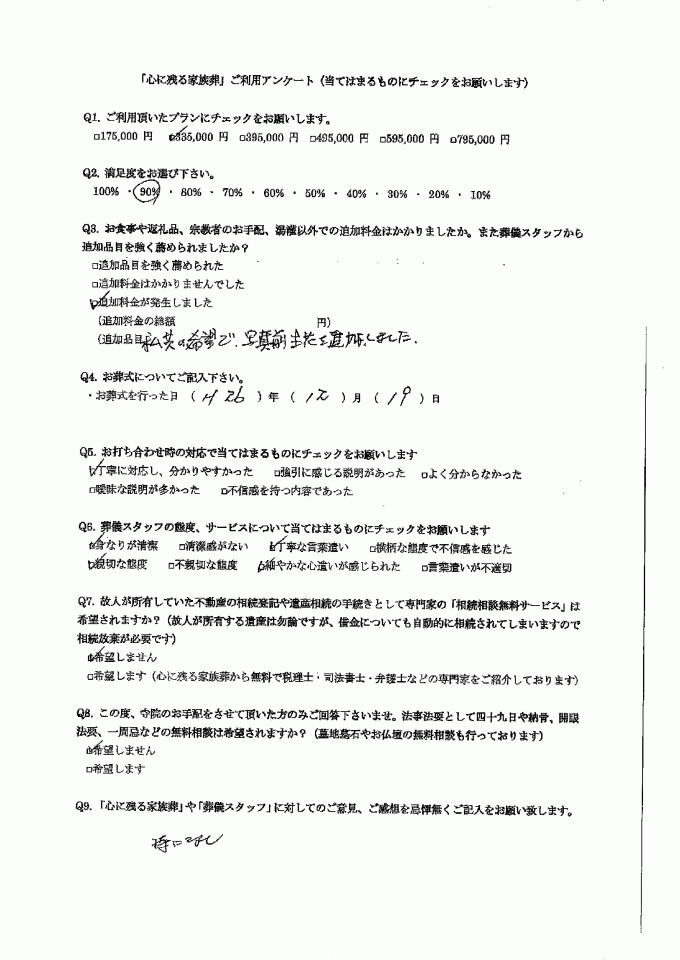 「心に残る家族葬」ご利用アンケート（当てはまるものにチェックをお願いします）
Q1. ご利用頂いたプランにチェックをお願いします。
□175,000 円 ☑335,000 円 □395,000 円 □495,000 円 □595,000 円 □795,000 円
Q2. 満足度をお選び下さい。
100% ・ 90% ・ 80% ・ 70% ・ 60% ・ 50% ・ 40% ・ 30% ・ 20% ・ 10%
Q3. お食事や返礼品、宗教者のお手配、湯灌以外での追加料金はかかりましたか。また葬儀スタッフから
追加品目を強く薦められましたか？
□追加品目を強く薦められた
□追加料金はかかりませんでした
☑追加料金が発生しました
（追加料金の総額　　　　　　　　　　　円）
（追加品目 私共の希望で、写真前生花を追加しました.
Q4. お葬式についてご記入下さい。
・お葬式を行った日 （ H 26 ）年（ 12 ）月（ 19 ）日
Q5. お打ち合わせ時の対応で当てはまるものにチェックをお願いします
☑丁寧に対応し、分かりやすかった □強引に感じる説明があった □よく分からなかった
□曖昧な説明が多かった □不信感を持つ内容であった
Q6. 葬儀スタッフの態度、サービスについて当てはまるものにチェックをお願いします
☑身なりが清潔 □清潔感がない ☑丁寧な言葉遣い □横柄な態度で不信感を感じた
☑親切な態度 □不親切な態度 ☑細やかな心遣いが感じられた □言葉遣いが不適切
Q7. 故人が所有していた不動産の相続登記や遺産相続の手続きとして専門家の「相続相談無料サービス」は
希望されますか？（故人が所有する遺産は勿論ですが、借金についても自動的に相続されてしまいますので
相続放棄が必要です）
☑希望しません
□希望します（心に残る家族葬から無料で税理士・司法書士・弁護士などの専門家をご紹介しております）
Q8. この度、寺院のお手配をさせて頂いた方のみご回答下さいませ。法事法要として四十九日や納骨、開眼
法要、一周忌などの無料相談は希望されますか？（墓地墓石やお仏壇の無料相談も行っております）
☑希望しません
□希望します
Q9. 「心に残る家族葬」や「葬儀スタッフ」に対してのご意見、ご感想を忌憚無くご記入をお願い致します。
特になし